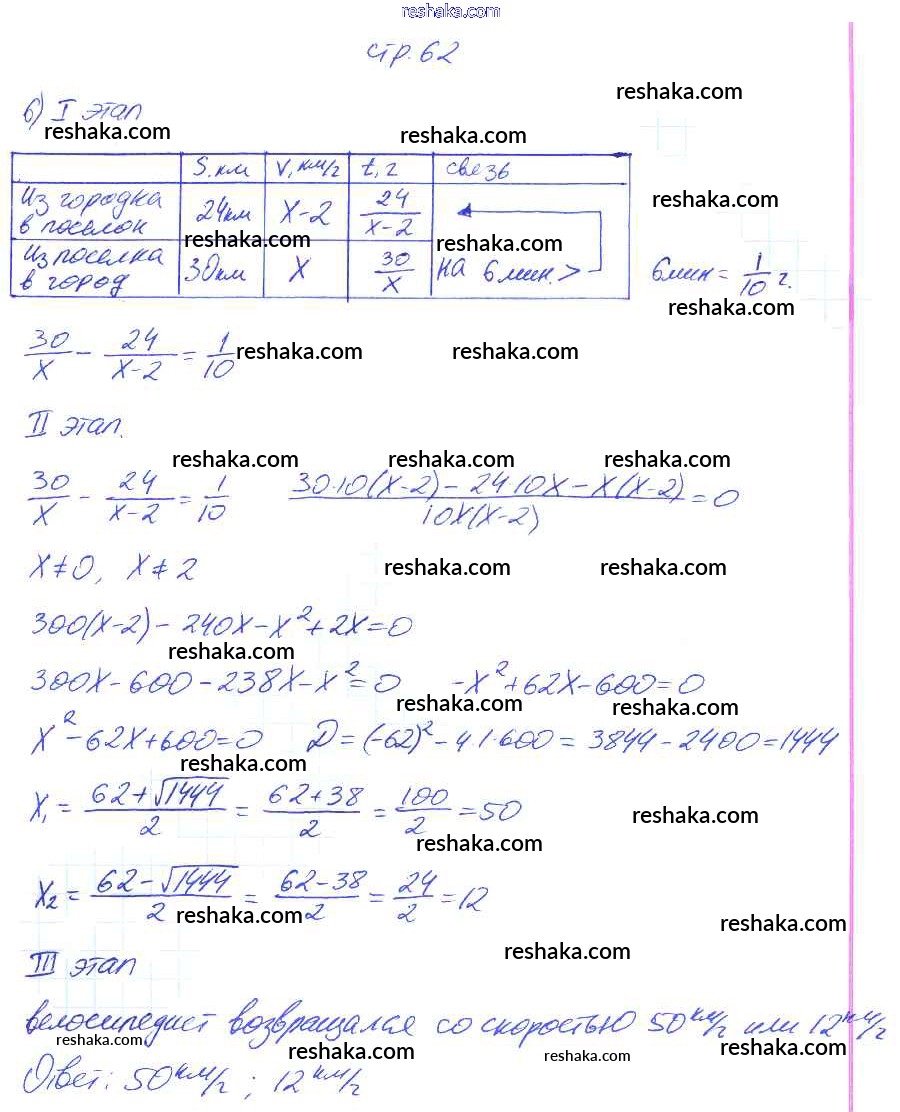 reshaka.com
стр. 62
reshaka.com
б) I этап
reshaka.com reshaka.com
S, км V, км/г t, г связь
Из городка в поселок 24км x-2 24/(x-2)
reshaka.com
Из поселка в город 30км x 30/x на 6 мин. >
reshaka.com reshaka.com
6мин = 1/10 г.
reshaka.com
30/x - 24/(x-2) = 1/10
reshaka.com reshaka.com
II этап.
reshaka.com reshaka.com reshaka.com
30/x - 24/(x-2) = 1/10 (30·10(x-2) - 24·10x - x(x-2))/(10x(x-2)) = 0
x≠0, x≠2
reshaka.com reshaka.com
300(x-2) - 240x - x²+2x=0
reshaka.com
300x-600-238x-x²=0 -x²+62x-600=0
reshaka.com reshaka.com
x²-62x+600=0 D=(-62)²-4·1·600=3844-2400=1444
reshaka.com
x₁ = (62+√1444)/2 = (62+38)/2 = 100/2 = 50
reshaka.com reshaka.com
x₂ = (62-√1444)/2 = (62-38)/2 = 24/2 = 12
reshaka.com reshaka.com
reshaka.com
III этап
велосипедист возвращался со скоростью 50км/г или 12км/г
reshaka.com reshaka.com reshaka.com reshaka.com
Ответ: 50км/г; 12км/г